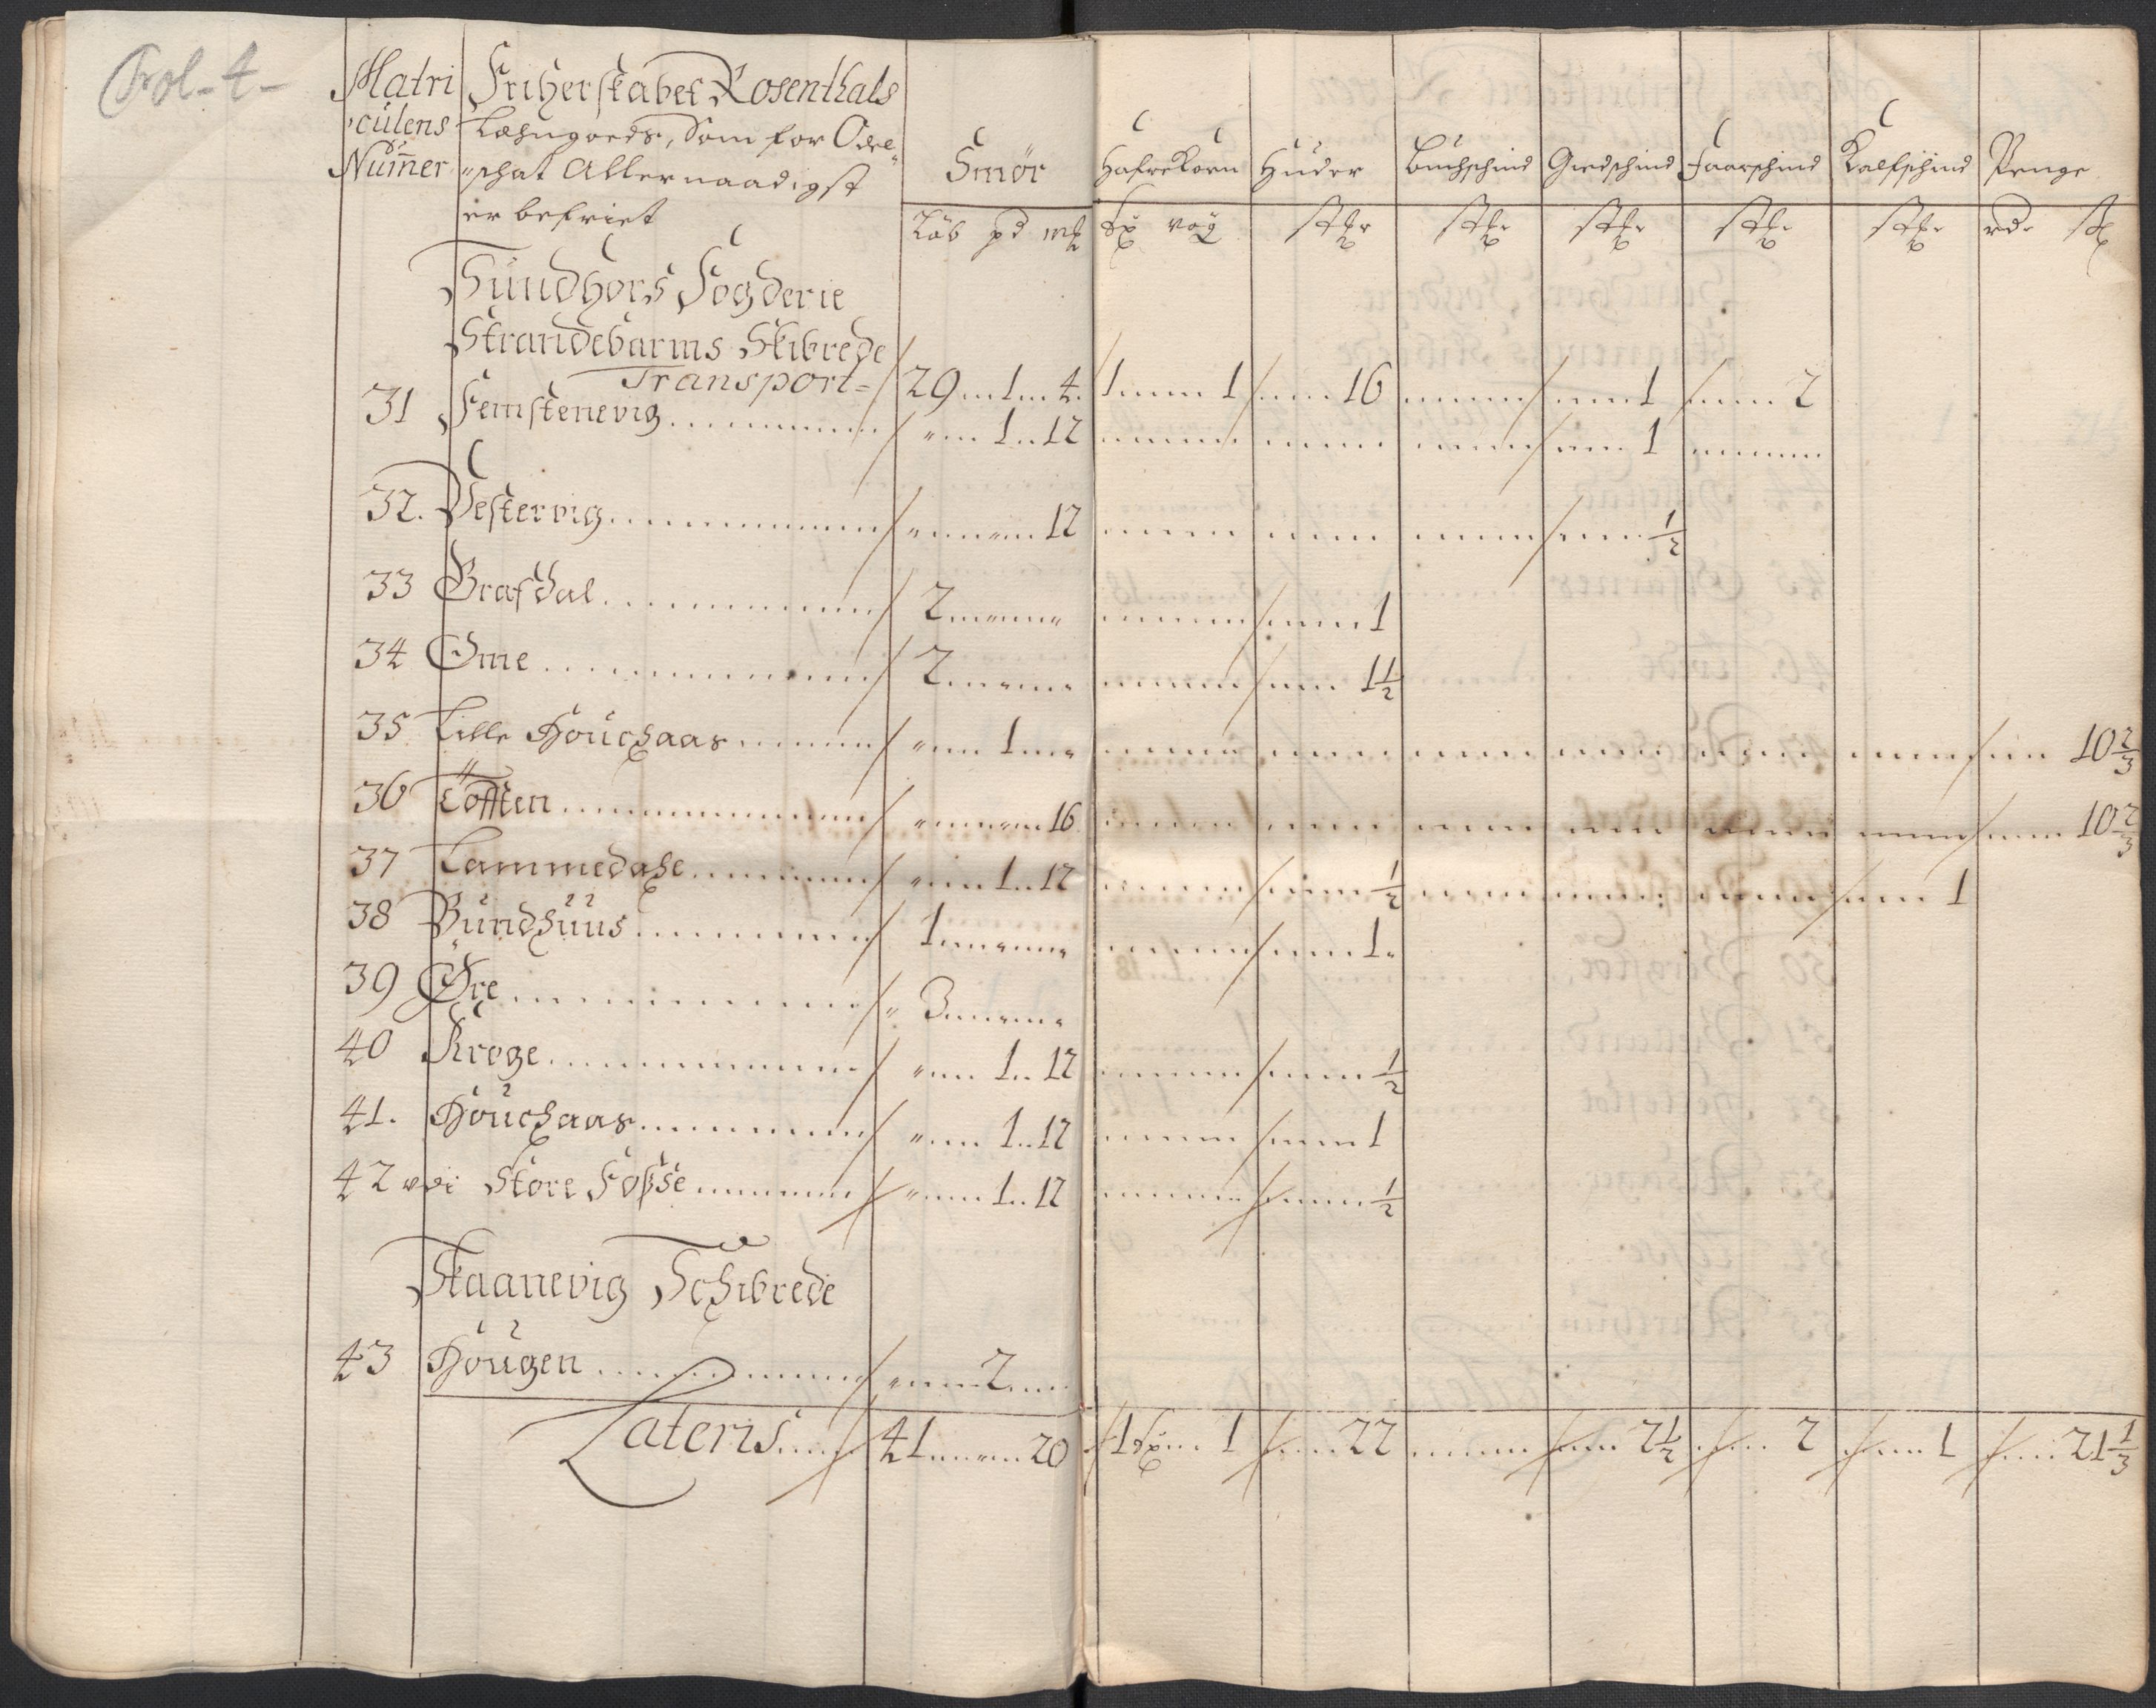 Fol-4-
Matri Friherskabet Rosenthals
cülens Læhngoeds, Som for Odel
Numer schat Allernaadigst
er befriet
Smör Hafrekorn Huder Buchschind Giedschind Faarschind Kalfschind Penge
Löb pd mk vog rd
Sundhors Fogderie
Strandebarms Skibrede
Transport 29 1 4 1 1 16 1 2
31 Femstenevig 1 12 1
32. Vestervig 12 ½
33 Grafdal 2 1
34 Ome 2 1½
35 Lille Houchaas 1 10⅔
36 Tofften 16 10⅔
37 Lammedahe 1 12 ½ 1
38 Bundhuus 1 1
39 Øre 3
40 Kroge 1 12 ½
41. Houchaas 1 12 1
42 Store Fosse 1 12 ½
Skaanevig Schibrede
43 Hougen 2
Lateris 41 20 1 1 22 2½ 2 1 21⅓